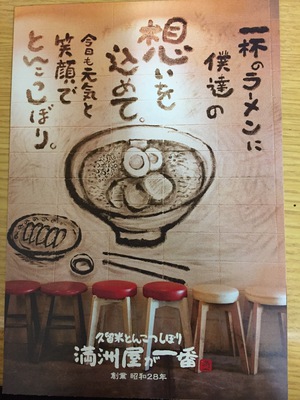 一杯のラーメンに
僕達の
想いを
込めて。
今日も元気と
笑顔で
とんこつしぼり。
久留米とんこつしぼり
満洲屋が一番
創業 昭和28年